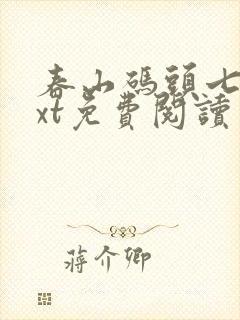 春山碼頭七
xt免費閱讀
蔣介卿